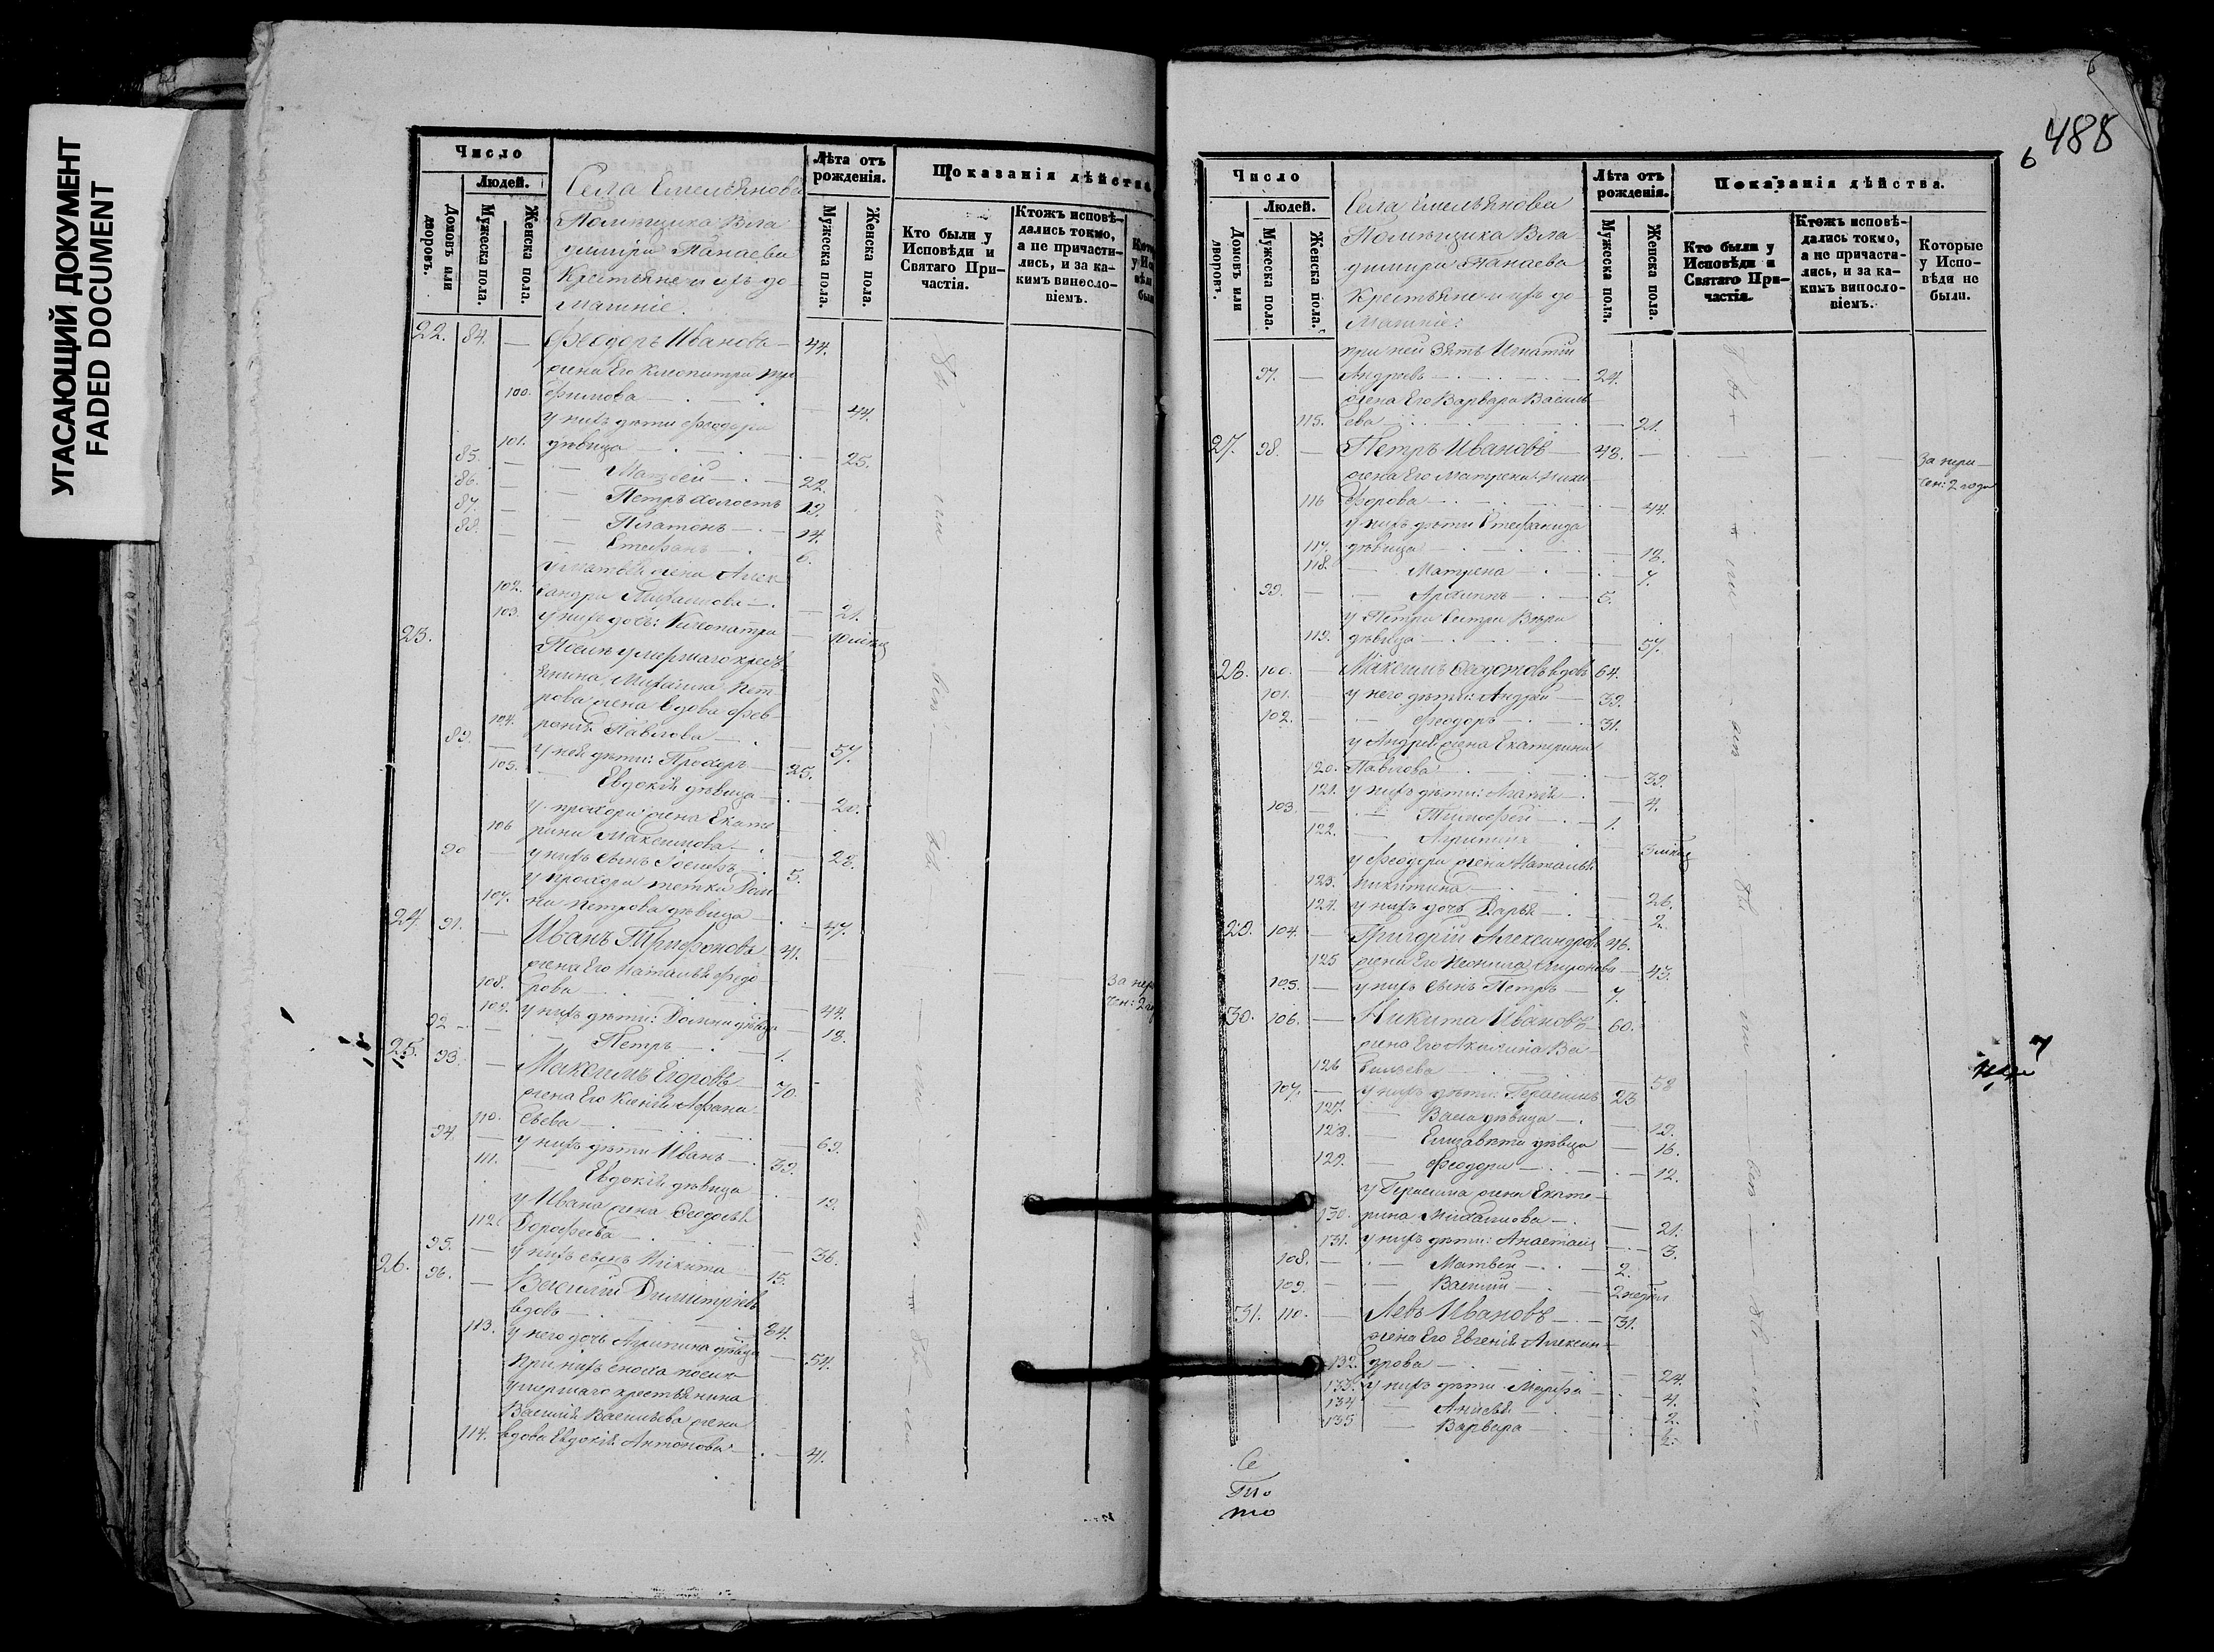 УГАСАЮЩИЙ ДОКУМЕНТ
FADED DOCUMENT
Число
Людей.
Домовъ или дворовъ.
Мужеска пола.
Женска пола.
Села Емельянова
Помѣщика Вла
димира Панаева
Крестьяне и ихъ до
машніе.
Лѣта отъ рожденія.
Мужеска пола.
Женска пола.
Показанія дѣйства
Кто были у Исповѣди и Святаго Причастія.
Ктожъ исповѣдались токмо, а не причастились, и за какимъ винословіемъ.
22. 84. — Феодоръ Ивановъ — 44.
жена Его Клеопатра Тро
100. фимова — 44.
у нихъ дѣти Феодора
101. дѣвица — 25.
85. — Матвей — 22.
86. — Петръ холостъ 19.
87. — Платонъ — 14.
88. — Стефанъ — 6.
у Матвея жена Алек
102. сандра Михайлова — 21.
103. у нихъ дочь: Клеопатра — 10 мѣсяц
23. Послѣ умершаго кресть
янина Михаила Пет
рова жена вдова Фев
104. ронія Павлова — 57.
89. — у ней дѣти: Прохоръ — 25.
105. Евдокія дѣвица — 20.
у Прохора жена Екате
106 рина Максимова — 28.
90 — у нихъ сынъ Іосифъ 5.
у Прохора тетка Дом
107. на Петрова дѣвица — 47.
24. 91. — Иванъ Трифоновъ 41.
жена Его Наталья Федо
108. рова — 44.
109. у нихъ дѣти: Домна дѣвица — 18.
92 — Петръ — 1.
За нера
чен: 2 го
25. 93. — Максимъ Егоровъ 70.
жена Его Ксенія Афана
110. сьева — 69.
94. — у нихъ дѣти Иванъ — 39.
111. Евдокія дѣвица — 19.
у Ивана жена Феодосья
112. Дорофеева — 36.
95. — у нихъ сынъ Никита — 15.
26. 96. — Василій Димитріевъ
вдовъ — 84.
113. у него дочь Агрипина дѣвица — 54.
При нихъ сноха послѣ
умершаго крестьянина
Василія Васильева жена
114. вдова Евдокія Антонова — 41.
488
6
Число
Людей.
Домовъ или дворовъ.
Мужеска пола.
Женска пола.
Села Емельянова
Помѣщика Вла
димира Панаева
Крестьяне и ихъ до
машніе:
Лѣта отъ рожденія.
Мужеска пола.
Женска пола.
Показанія дѣйства.
Кто были у Исповѣди и Святаго Причастія.
Ктожъ исповѣдались токмо, а не причастились, и за какимъ винословіемъ.
Которые у Исповѣди не были.
при ней зять Игнатій
97. — Андреевъ — 24.
жена Его Варвара Василь
115. ева — 21.
27. 98. — Петръ Ивановъ 48. —
За нера
чен: 2 года
жена Его Матрена Ники
116 форова — 44.
у нихъ дѣти Стефанида
117. дѣвица — 18.
118. — Матрена — 7.
99. — Архипъ — 5.
у Петра сестра Вѣра
119. дѣвица — 57.
28. 100. — Максимъ Федотовъ вдовъ 64.
101. — у него дѣти: Андрей — 39.
102. — Феодоръ — 31.
у Андрея жена Екатерина
120. Павлова — 39.
121. у нихъ дѣти: Агапія — 4.
103. — Тимофей — 1.
122. — Агрипина — 3 мѣсяц
у Феодора жена Наталья
123. Никитина — 26.
124. у нихъ дочь Дарья — 2.
29. 104. — Григорій Александровъ 46.
125 жена Его Неонила Миронова — 43.
105. — у нихъ сынъ Петръ — 7.
30. 106. — Никита Ивановъ 60.
жена Его Акилина Ва
126 сильева — 58
107. — у нихъ дѣти: Герасимъ 23
127. Васса дѣвица — 19.
128. — Елизавета дѣвица — 16.
129. — Феодора — 12.
у Герасима жена Екате
130. рина Михайлова — 21.
131. у нихъ дѣти: Анастасія — 3.
108. — Матвей — 2.
109. — Василій — 2 недѣли
31. 110. — Левъ Ивановъ — 31.
жена Его Евгенія Алексан
132. дрова — 24.
133. у нихъ дѣти Марфа — 4.
134 — Анисья — 2.
135 — Варвара —
Се
По
то